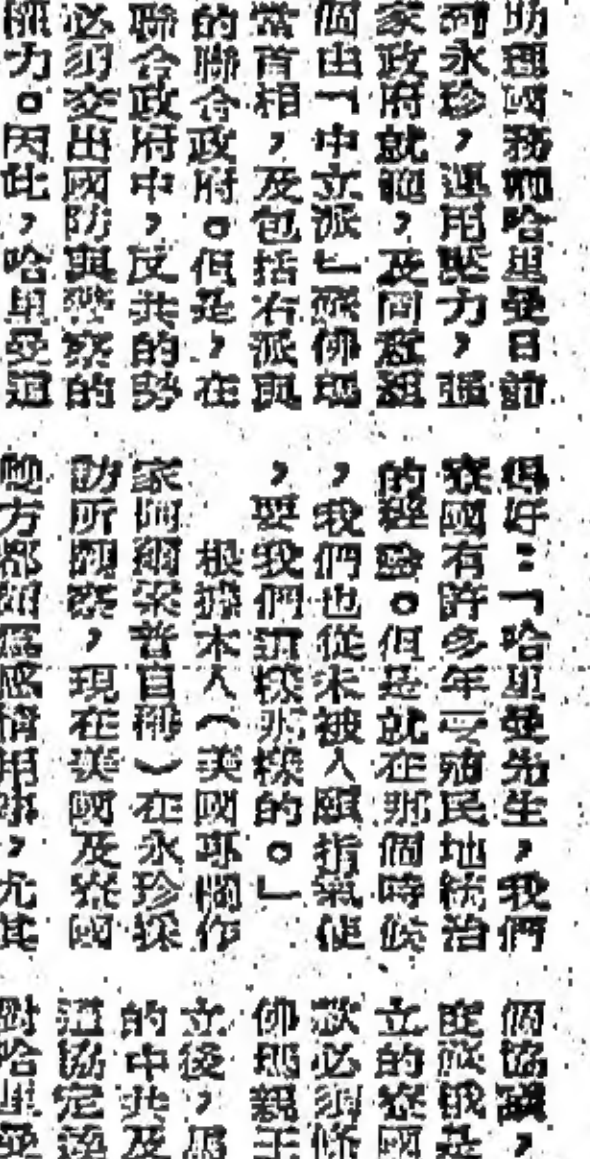 助理國務卿哈里曼日前
到永珍，運用壓力，強
家政府就範，及同意組
個由「中立派」富佛瑪
當首相，及包括右派與
的聯合政府。但是，在
聯合政府中，反共的勢
必須交出國防與警察的
權力。因此，哈里曼迫
得好：「哈里曼先生，我們
寮國有許多年受殖民地統治
的經驗。但是就在那個時候
，我們也從未被人頤指氣使
，要我們這樣那樣的。」
根據本人（美國專欄作
家　　　　普自稱）在永珍採
訪所觀察，現在美國及寮國
雙方都　　感情用事，尤其
個協議，
立的寮國
款必須
佛瑪親王
立後，
的中共及
這協定
對哈里曼